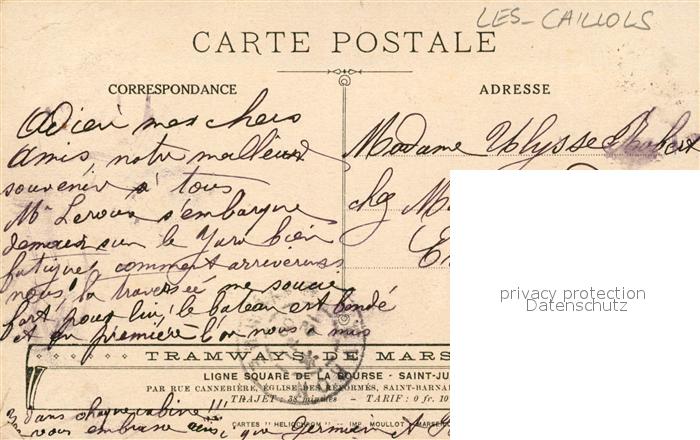 LES-CAILLOLS
CARTE POSTALE
CORRESPONDANCE
ADRESSE
Adieu mes chers
amis notre meilleur
souvenir à tous
Mr Leroux s'embarque
demain sur le Yara bien
fatigué comment arriverons
nous la traversée me soucie
fort pour lui, le bateau est bondé
et en première l'on nous a mis
Madame Ulysse Robert
chez M
privacy protection
Datenschutz
TRAMWAYS DE MARS
LIGNE SQUARE DE LA BOURSE - SAINT-JU
PAR RUE CANNEBIÈRE, ÉGLISE DES RÉFORMÉS, SAINT-BARNA
TRAJET : 38 minutes - TARIF : 0 fr. 10
3 dans chaque cabine !!!
vous embrasse ainsi que Germain et
CARTES "HELIOCHROM" - IMP. MOULLOT - MARSEI